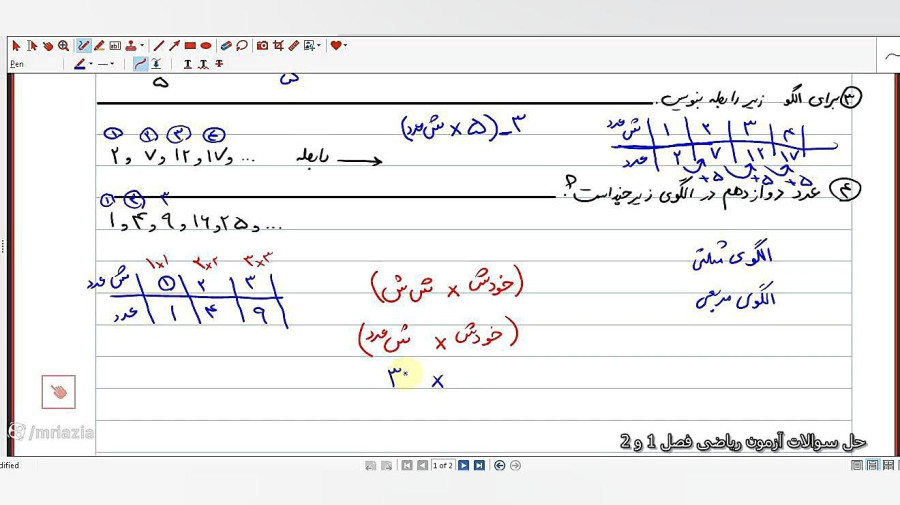 Pen
۵
ش
۳ برای الگو زیر رابطه بنویس.
۱ ۲ ۳ ۴
۲ و ۷ و ۱۲ و ۱۷ و ... رابطه
(ش عدد × ۵) - ۳
ش عدد | ۱ | ۲ | ۳ | ۴
عدد | ۲ | ۷ | ۱۲ | ۱۷
+۵ +۵ +۵
۴ عدد دوازدهم در الگوی زیر چند است؟
۱ ۲ ۳
۱ و ۴ و ۹ و ۱۶ و ۲۵ و ...
۱×۱ ۲×۲ ۳×۳
ش عدد | ۱ | ۲ | ۳
عدد | ۱ | ۴ | ۹
(خودش × ش ش)
(خودش × ش عدد)
۳۰ ×
الگوی مثلثی
الگوی مربعی
/mriazia
حل سوالات آزمون ریاضی فصل 1 و 2
dified
1 of 2